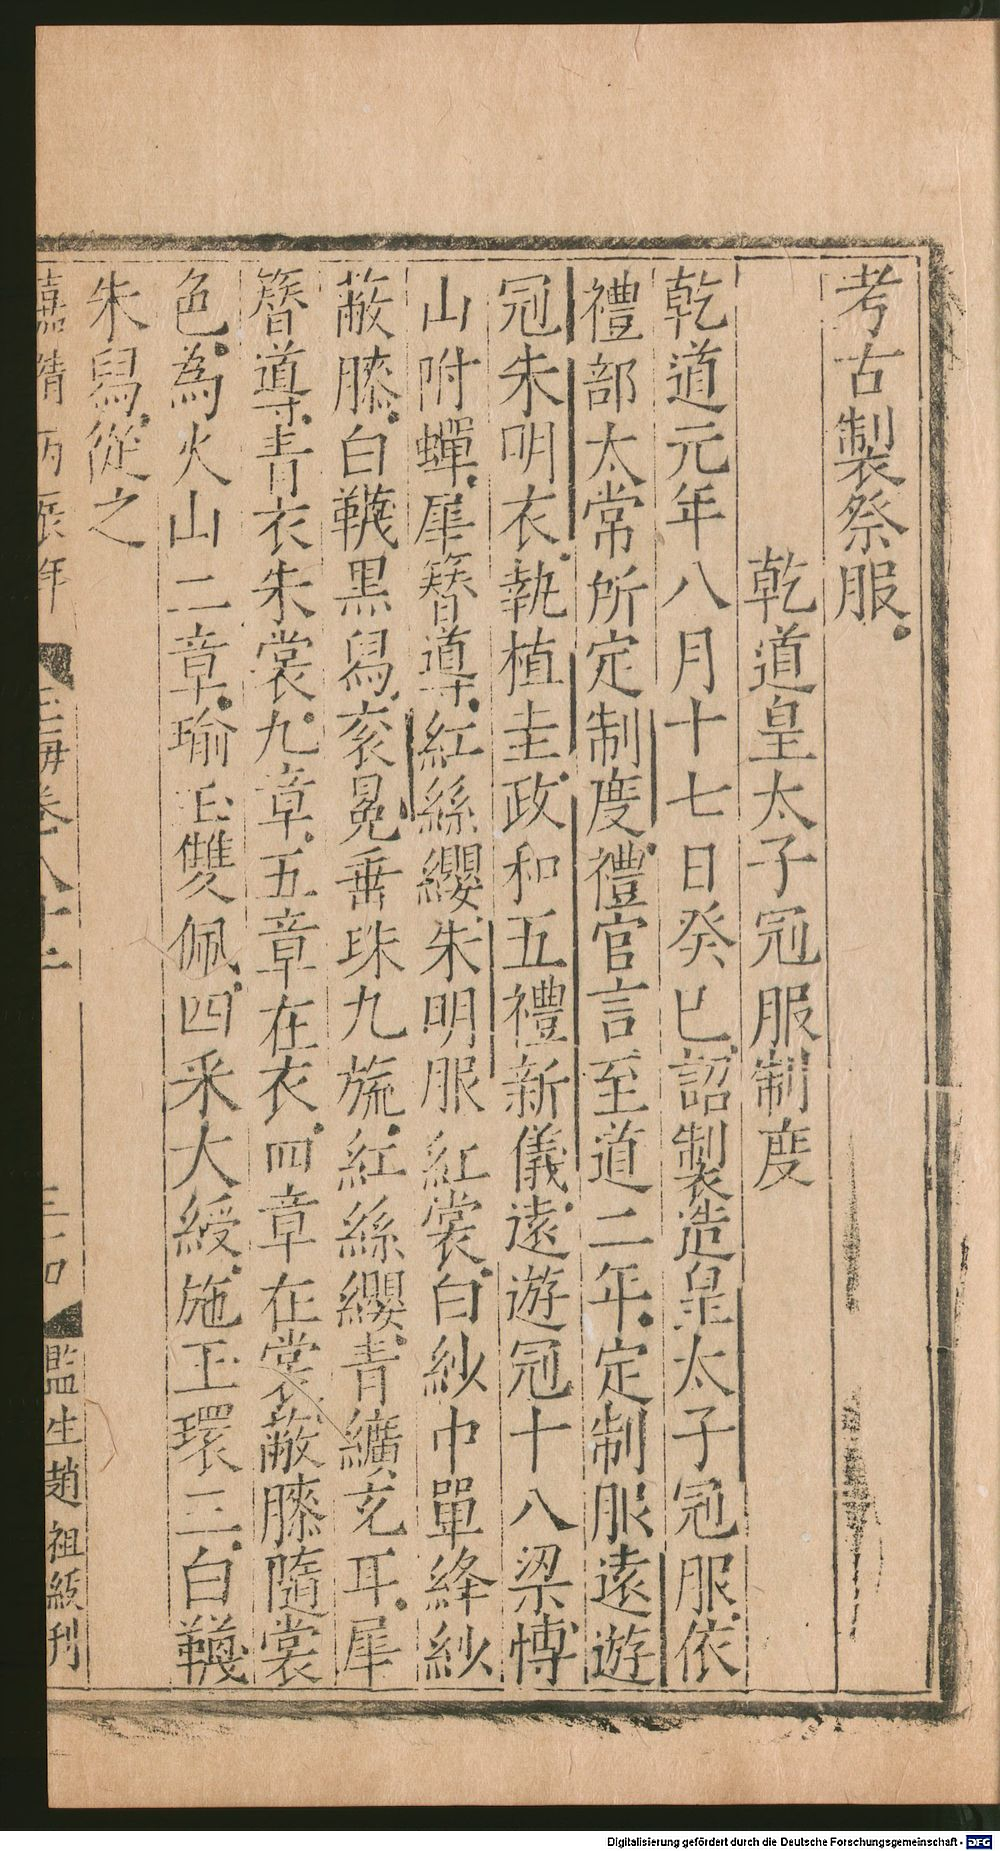 考古製祭服
乾道皇太子冠服制度
乾道元年八月十七日癸巳詔製造皇太子冠服依
禮部太常所定制度禮官言至道二年定制服遠遊
冠朱明衣執植圭政和五禮新儀遠遊冠十八梁博
山附蟬犀簪導紅絲纓朱明服紅裳白紗中單絳紗
蔽膝白韈黑舄衮冕垂珠九旒紅絲纓青纊充耳犀
簪導青衣朱裳九章五章在衣四章在裳蔽膝隨裳
色為火山二章瑜玉雙佩四采大綬施玉環三白韈
朱舄從之
嘉靖丙辰年 玉海卷八十二 三十四 監生趙祖刊
Digitalisierung gefördert durch die Deutsche Forschungsgemeinschaft - DFG